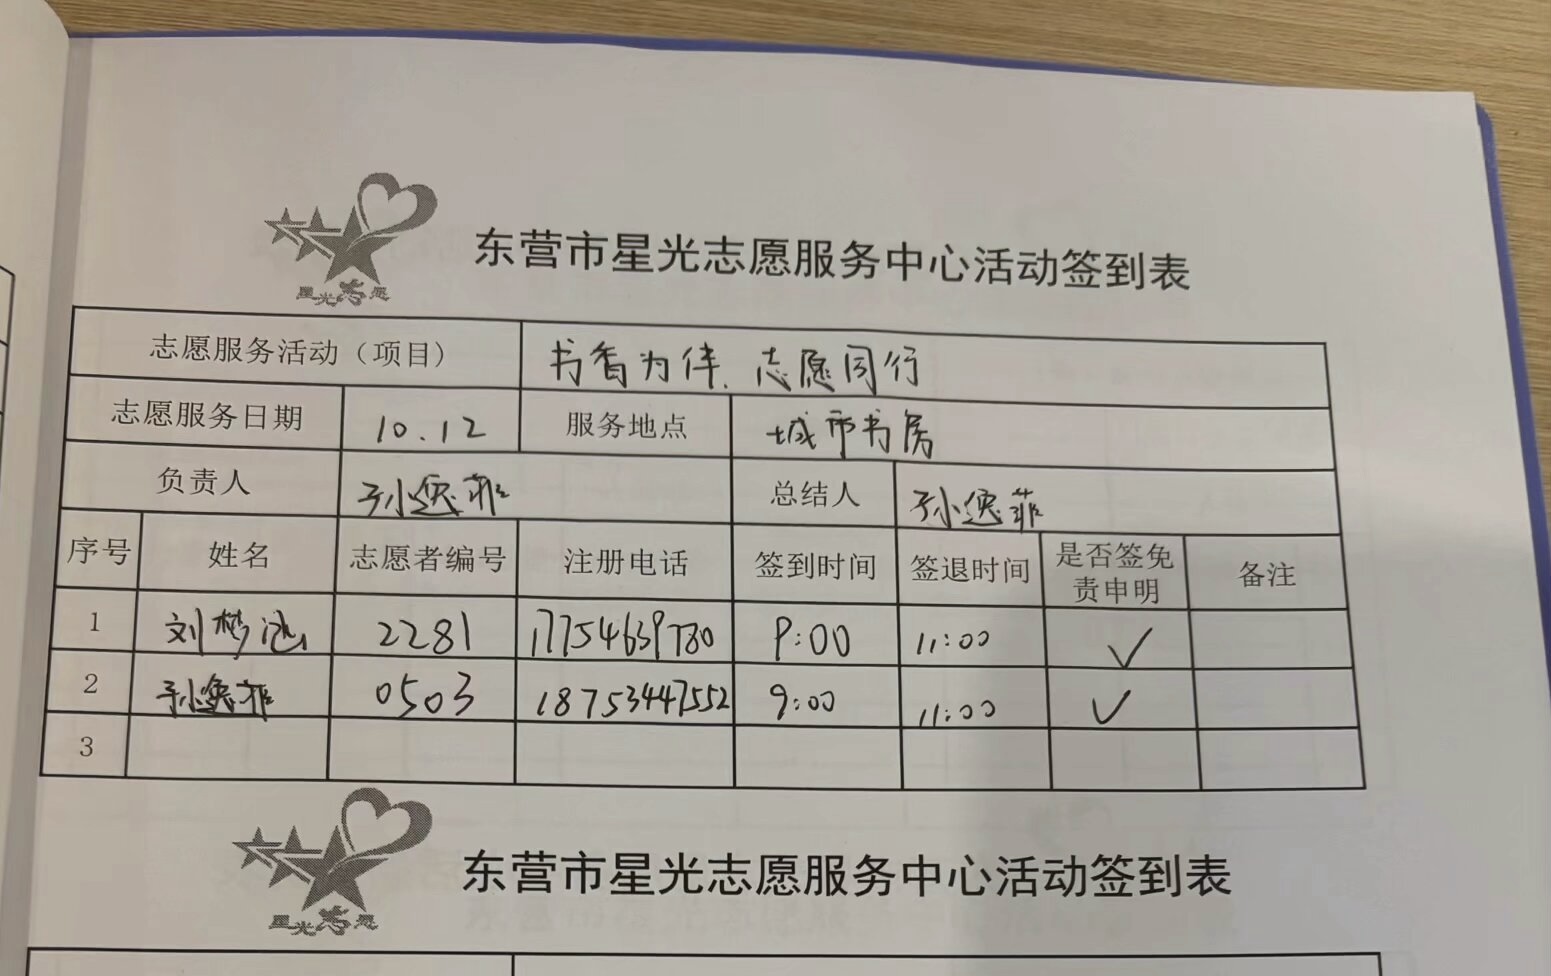 星光志愿
东营市星光志愿服务中心活动签到表
志愿服务活动（项目） 书香为伴、志愿同行
志愿服务日期 10.12 服务地点 城市书房
负责人 孙逸菲 总结人 孙逸菲
序号 姓名 志愿者编号 注册电话 签到时间 签退时间 是否签免责申明 备注
1 刘梦 2281 17754639780 9:00 11:00 ✓
2 孙逸菲 0503 18753447552 9:00 11:00 ✓
3
星光志愿
东营市星光志愿服务中心活动签到表